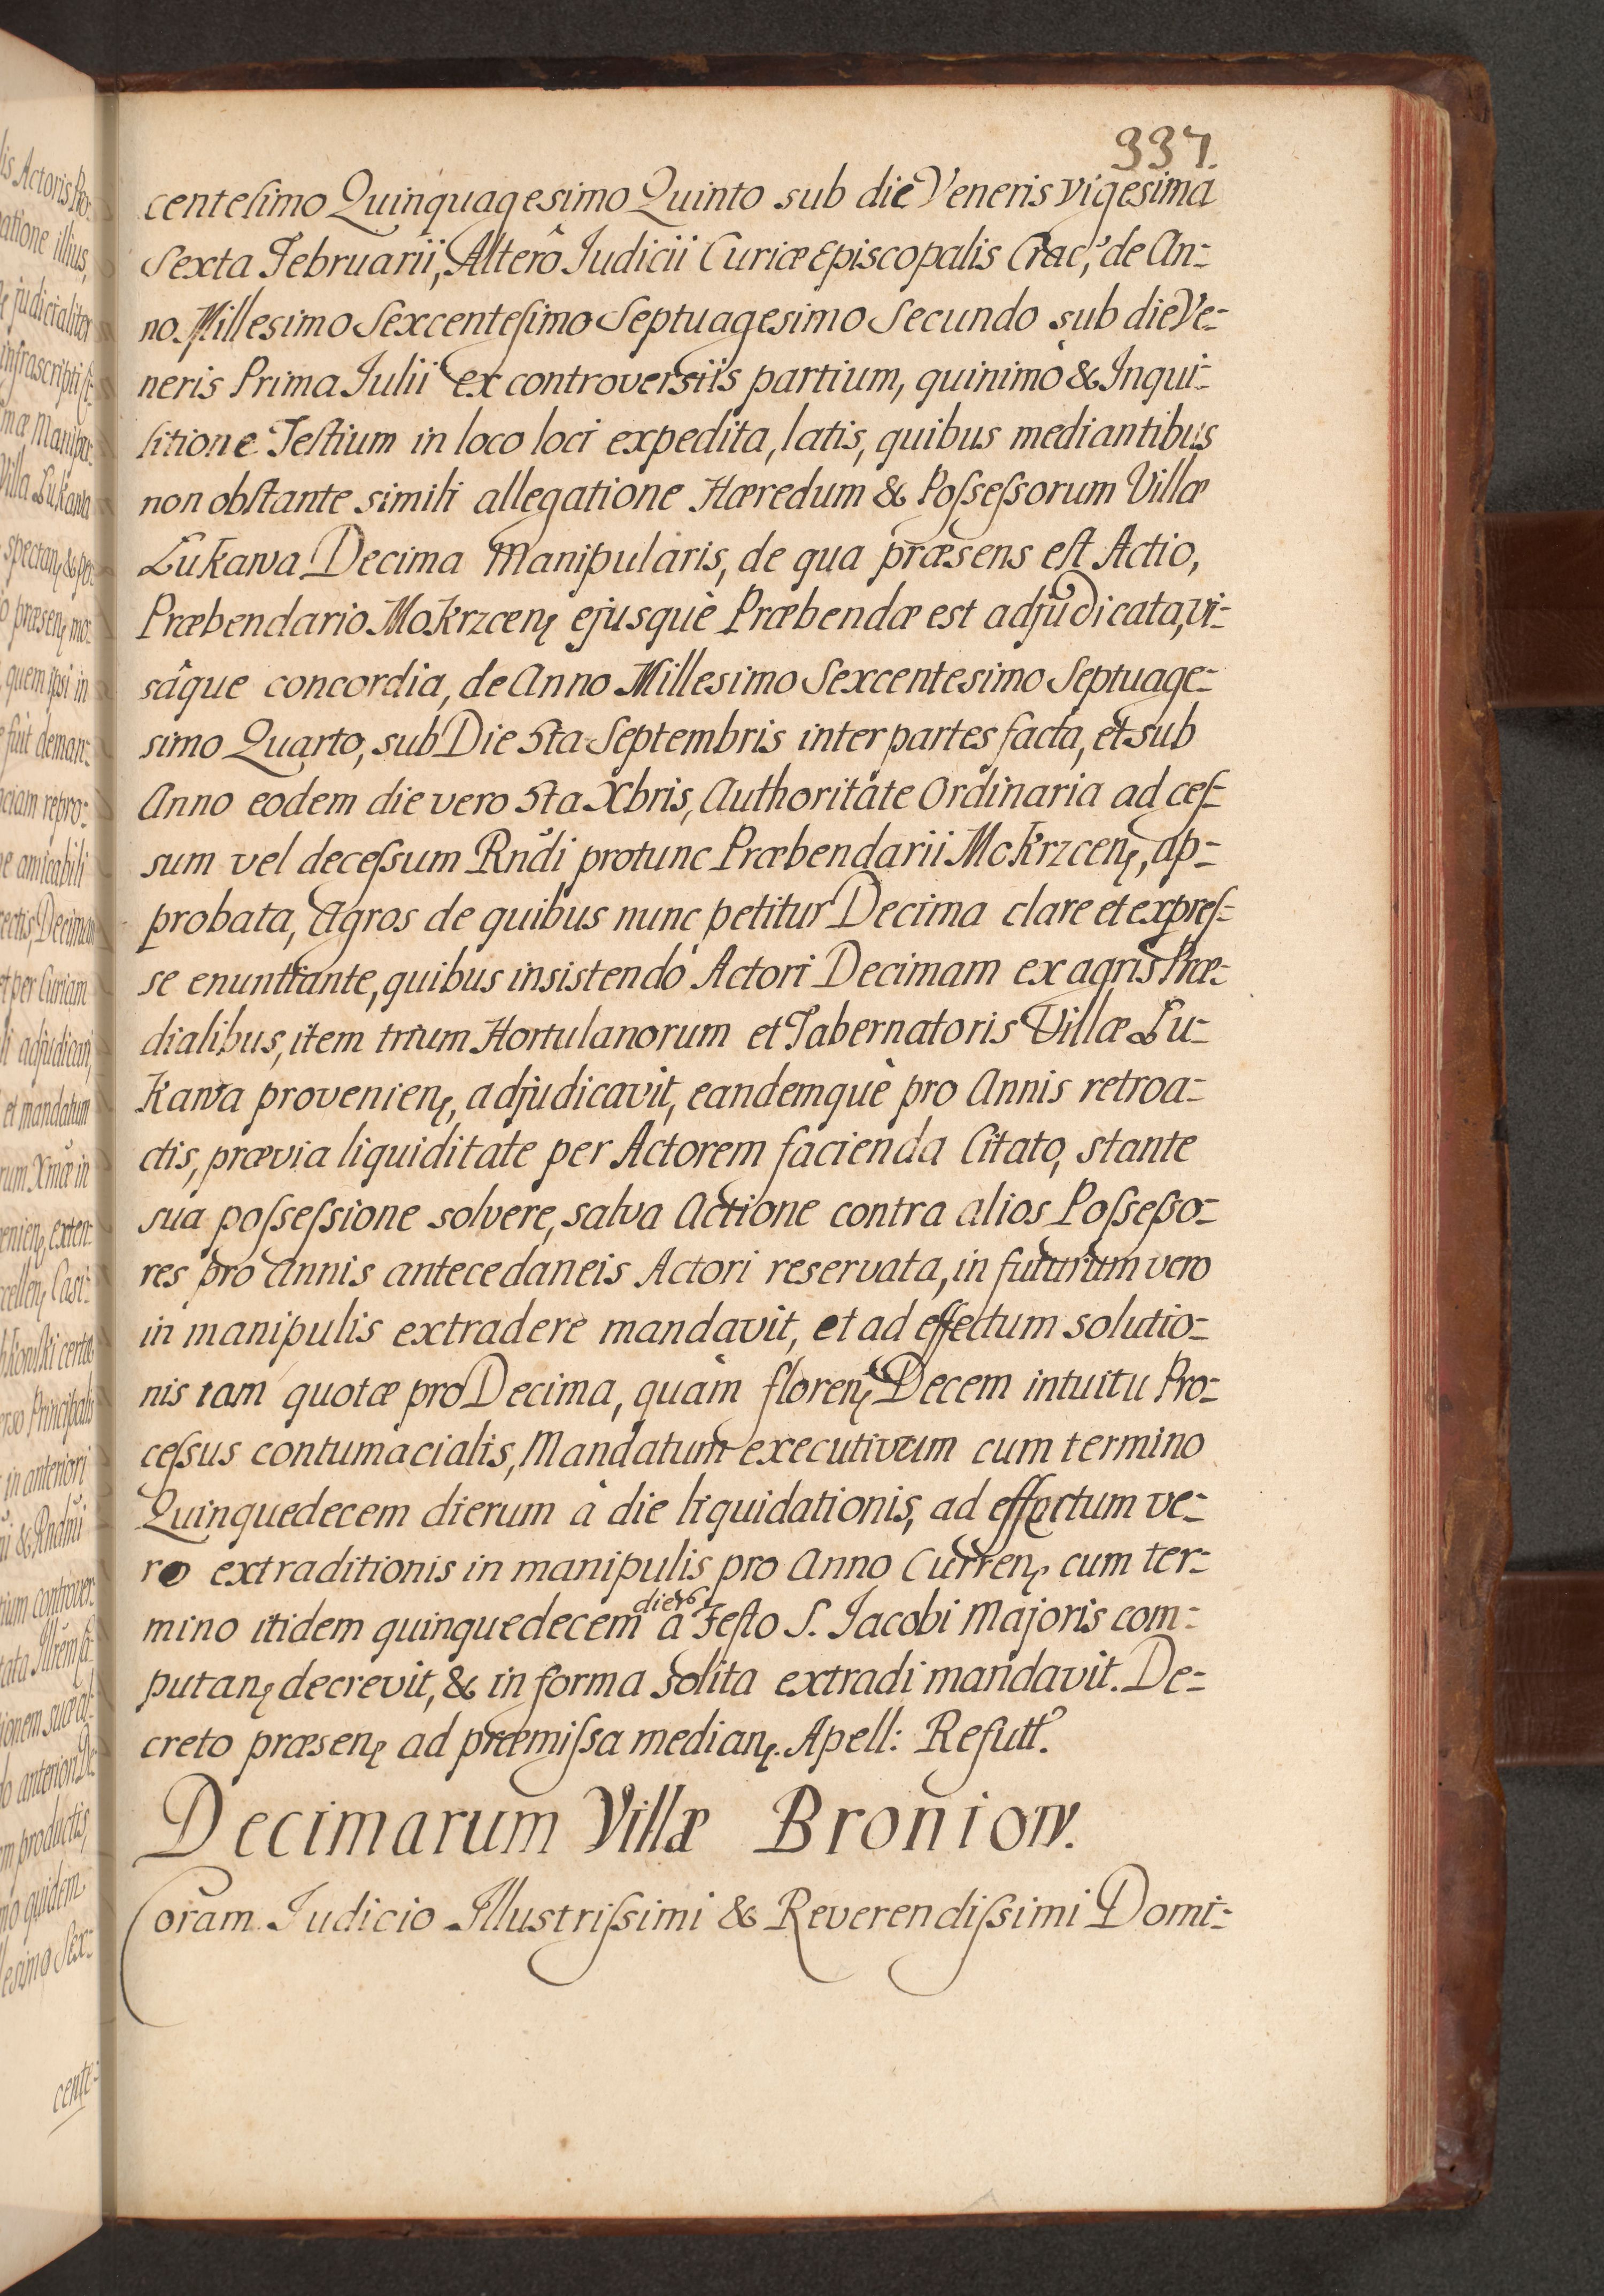 337.
centesimo Quinquagesimo Quinto sub die Veneris vigesima
Sexta Februarii, Alterô Iudicii Curiæ Episcopalis Crac, de An-
no Millesimo Sexcentesimo Septuagesimo Secundo sub die Ve-
neris Prima Iulii ex controversiis partium, quinimò & Inqui-
sitione Testium in loco loci expedita, latis, quibus mediantibus
non obstante simili allegatione Hæredum & Possessorum Villæ
Lukawa Decima Manipularis, de qua præsens est Actio,
Præbendario Mokrzcenę ejusquè Præbendæ est adjudicata, vi-
sâque concordia, de Anno Millesimo Sexcentesimo Septuage-
simo Quarto, sub Die 5ta Septembris inter partes facta, et sub
Anno eodem die vero 5ta Xbris, Authoritate Ordinaria ad ces-
sum vel decessum Rndi protunc Præbendarii Mokrzcenę, ap-
probata, Agros de quibus nunc petitur Decima clare et expres-
se enuntiante, quibus insistendo Actori Decimam ex agris Præ-
dialibus, item trium Hortulanorum et Tabernatoris Villæ Lu-
kawa provenienę, adjudicavit, eandemquè pro Annis retroa-
ctis, prævia liquiditate per Actorem facienda Citato, stante
sua possessione solvere, salva Actione contra alios Possesso-
res pro Annis antecedaneis Actori reservata, in futurum vero
in manipulis extradere mandavit, et ad effectum solutio-
nis tam quotæ pro Decima, quàm florenę Decem intuitu Pro-
cessus contumacialis, Mandatum executivum cum termino
Quinquedecem dierum à die liquidationis, ad effectum ve-
ro extraditionis in manipulis pro Anno Currenę cum ter-
mino itidem quinquedecem dier à Festo S. Jacobi Majoris com-
putanę decrevit, & in forma solita extradi mandavit. De-
creto præsenę ad præmissa medianę. Apell: Refutt.
Decimarum Villæ Broniow.
Coram Iudicio Illustrissimi & Reverendissimi Domi-